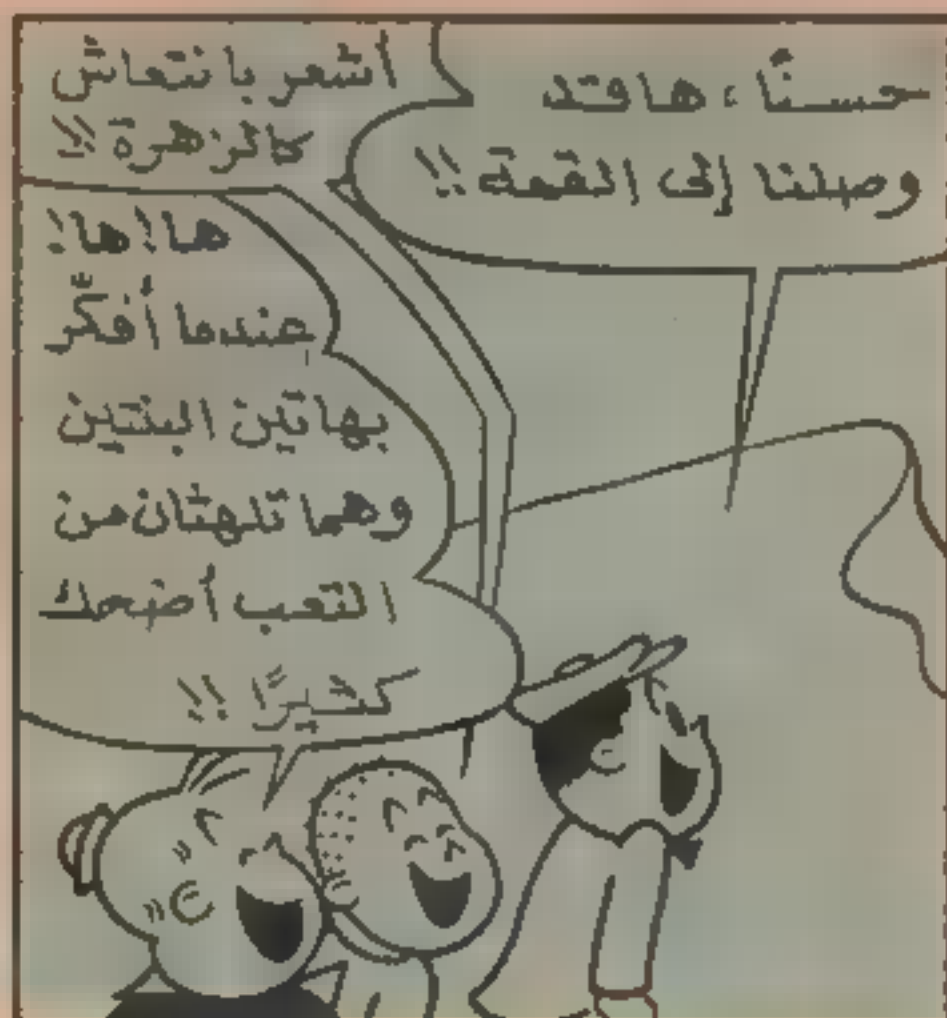 حسنًا، ها قد
وصلنا إلى القمة!!
أشعر بانتعاش
كالزهرة!!
ها! ها!
عندما أفكّر
بهاتين البنتين
وهما تلهثان من
التعب أضحك
كثيرًا!!